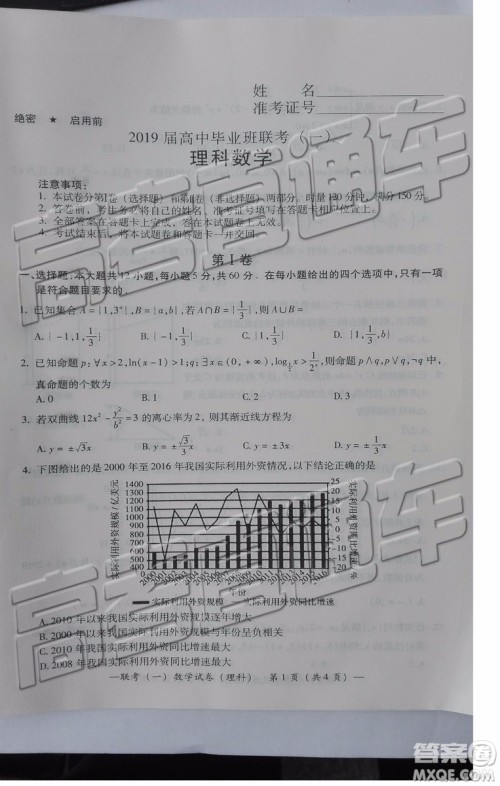 姓 名
准考证号
绝密 ★ 启用前
2019 届高中毕业班联考（一）
理科数学
注意事项：
1. 本试卷分第Ⅰ卷（选择题）和第Ⅱ卷（非选择题）两部分，时量120分钟，满分150分。
2. 答卷前，考生务必将自己的姓名、准考证号填写在答题卡指定位置上。
3. 全部答案在答题卡上完成，答在本试卷上无效。
4. 考试结束后，将本试卷和答题卡一并交回。
第Ⅰ卷
一、选择题：本大题共12小题，每小题5分，共60分．在每小题给出的四个选项中，只有一项
是符合题目要求的．
1. 已知集合A={1,3ᵃ},B={a,b},若A∩B={1/3},则A∪B=
B. {-1,1/3} C. {1,1/3}
2. 已知命题p:∀x>2,ln(x-1)>1;q:∃x∈(0,+∞), 则命题p∧q,p∨q,¬q中，
真命题的个数为
A. 0 B. 1 C. 2 D. 3
3. 若双曲线12x²-y²/b²=3的离心率为2，则其渐近线方程为
A. y=±√3x C. y=±1/3x
4. 下图给出的是2000年至2016年我国实际利用外资情况，以下结论正确的是
实际利用外资规模/亿美元
1400
1300
1200
1100
1000
900
800
700
600
500
400
25
20
15
10
5
0
-5
-10
-15
-20
实际利用外资同比增速/%
年份
实际利用外资规模 实际利用外资同比增速
A. 2010年以来我国实际利用外资规模逐年增大
B. 2000年以来我国实际利用外资规模与年份呈负相关
C. 2010年以来我国实际利用外资同比增速最大
D. 2008年以来我国实际利用外资同比增速最大
—联考（一）数学试卷（理科） 第1页（共4页）—
高考直通车
高考直通车
答案圈
MXQE.COM